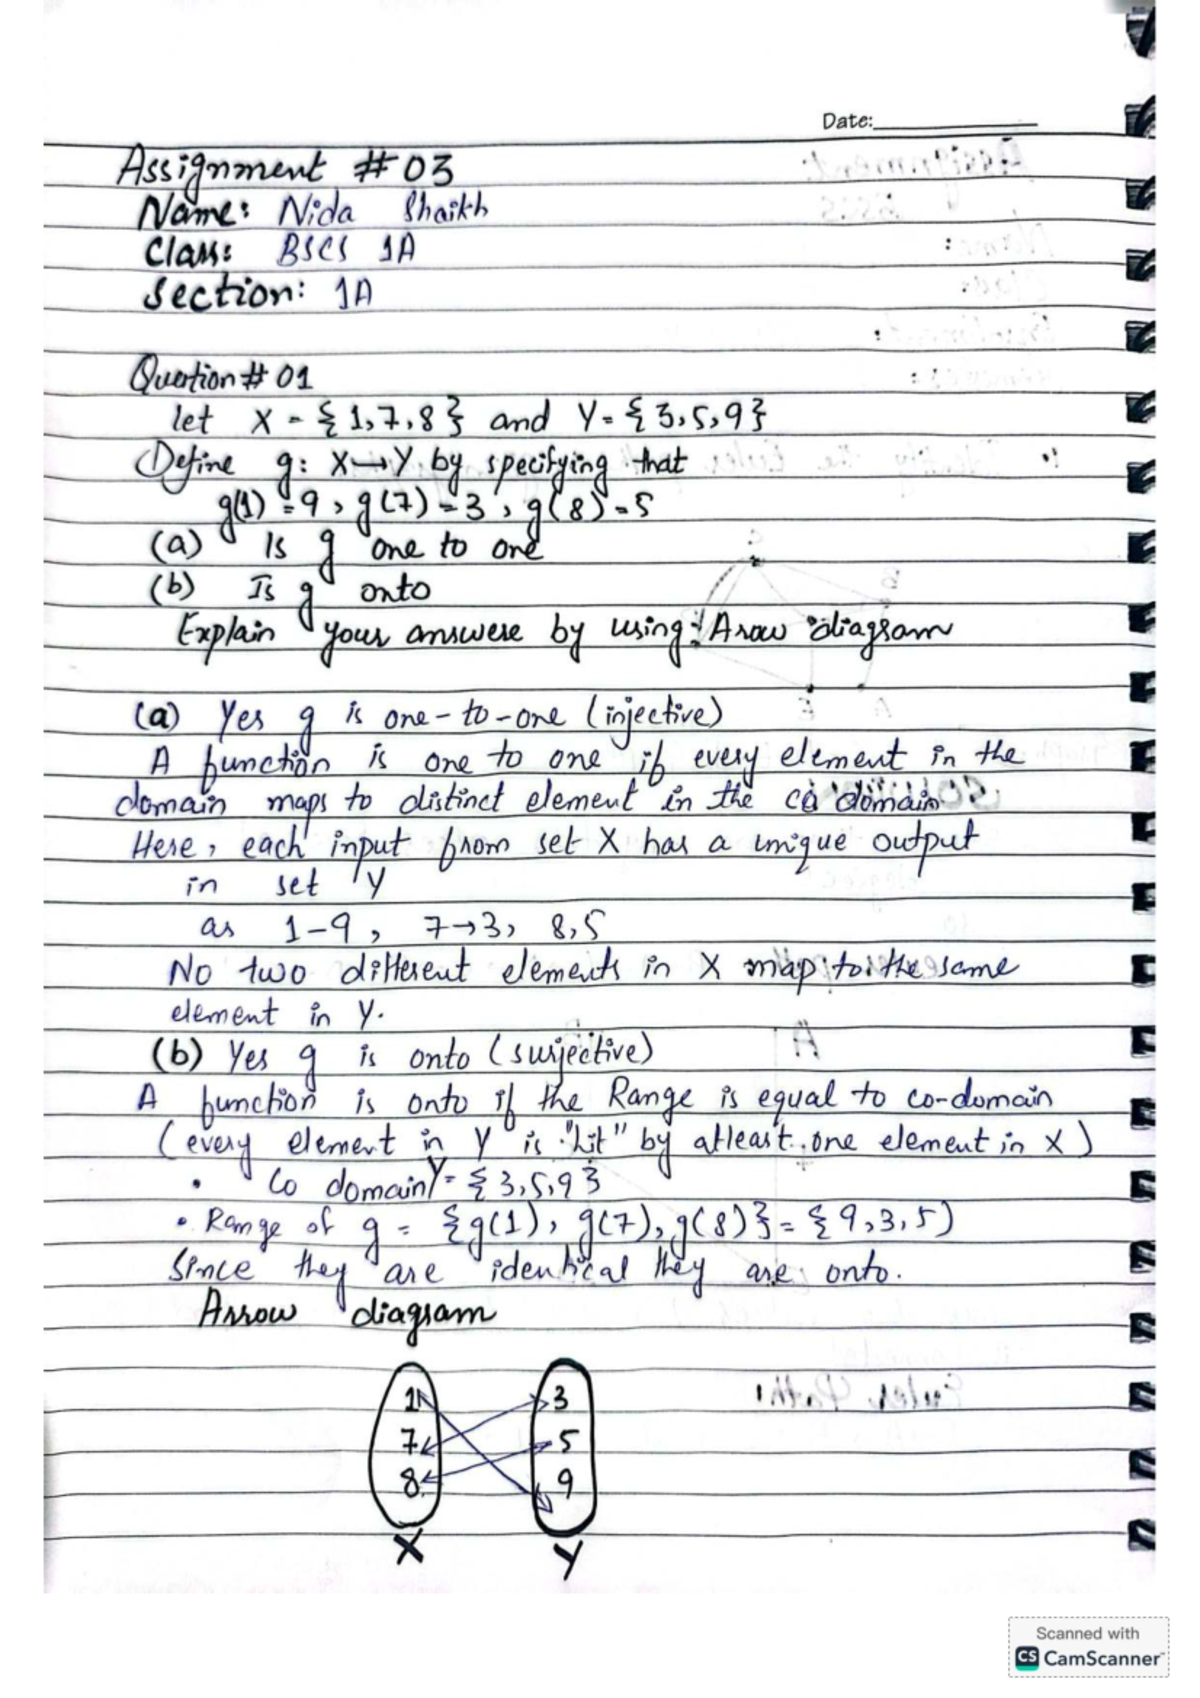 Date:
Assignment #03
Name: Nida Shaikh
Class: BSCS 1A
Section: 1A
Question# 01
let X = {1,7,8} and Y= {3,5,9}
Define g: X→Y by specifying that
g(1) = 9, g(7) = 3, g(8) = 5
(a) Is g one to one
(b) Is g onto
Explain your answere by using: Arow diagram
(a) Yes g is one-to-one (injective)
A function is one to one if every element in the
domain maps to distinct element in the co domain
Here, each input from set X has a unique output
in set Y
as 1-9, 7→3, 8,5
No two different elements in X map to the same
element in Y.
(b) Yes g is onto (surjective)
A function is onto if the Range is equal to co-domain
(every element in Y is "hit" by atleast one element in X)
• Co domain Y= {3,5,9}
• Range of g = {g(1), g(7), g(8)} = {9,3,5)
Since they are identical they are onto.
Arrow diagram
1 3
7 5
8 9
X Y
Scanned with
CS CamScanner